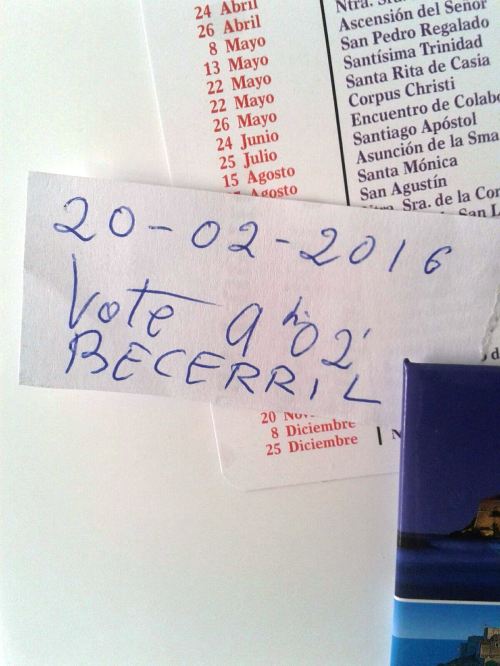 24 Abril
26 Abril
8 Mayo
13 Mayo
22 Mayo
22 Mayo
26 Mayo
24 Junio
25 Julio
15 Agosto
Agosto
Ntra.
Ascensión del Señor
San Pedro Regalado
Santísima Trinidad
Santa Rita de Casia
Corpus Christi
Encuentro de Colabo
Santiago Apóstol
Asunción de la Sma
Santa Mónica
San Agustín
Ntra. Sra. de la Cor
San L
20-02-2016
Vote 9h02'
BECERRIL
20 Nov
8 Diciembre
25 Diciembre